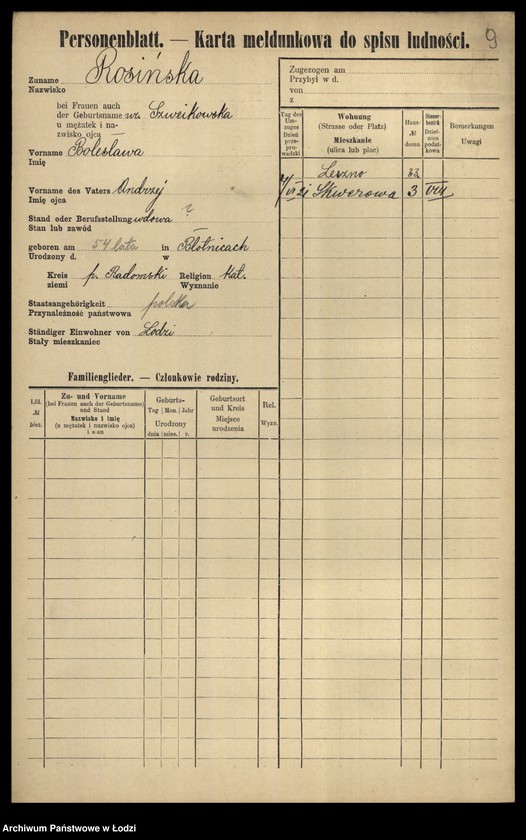 Personenblatt. — Karta meldunkowa do spisu ludności. 9
Zuname Rosińska
Nazwisko
bei Frauen auch
der Geburtsname
u mężatek i na-
zwisko ojca
Vorname Bolesława
Imię
Vorname des Vaters Andrzej
Imię ojca
Stand oder Berufsstellung wdowa ?
Stan lub zawód
geboren am 54 lata in Błotnicach
Urodzony d. w
Kreis p. Radomski Religion kat.
ziemi Wyznanie
Staatsangehörigkeit polska
Przynależność państwowa
Ständiger Einwohner von Łodzi
Stały mieszkaniec
Familienglieder. — Członkowie rodziny.
Lfd. № bież.
Zu- und Vorname
(bei Frauen auch der Geburtsname)
und Stand
Nazwisko i imię
(u mężatek i nazwisko ojca)
i stan
Geburts-
Tag Mon. Jahr
Urodzony
dnia mies. r.
Geburtsort
und Kreis
Miejsce
urodzenia
Rel.
Wyzn.
Zugezogen am
Przybył w d.
von
z
Tag des
Um-
zuges
Dzień
prze-
prowadzki
Wohnung
(Strasse oder Platz)
Mieszkanie
(ulica lub plac)
Haus-
№
domu
Steuer-
bezirk
Dziel-
nica
podat-
kowa
Bemerkungen
Uwagi
Leszno 33
7/VI 21 Skwerowa 3 VIII
Archiwum Państwowe w Łodzi